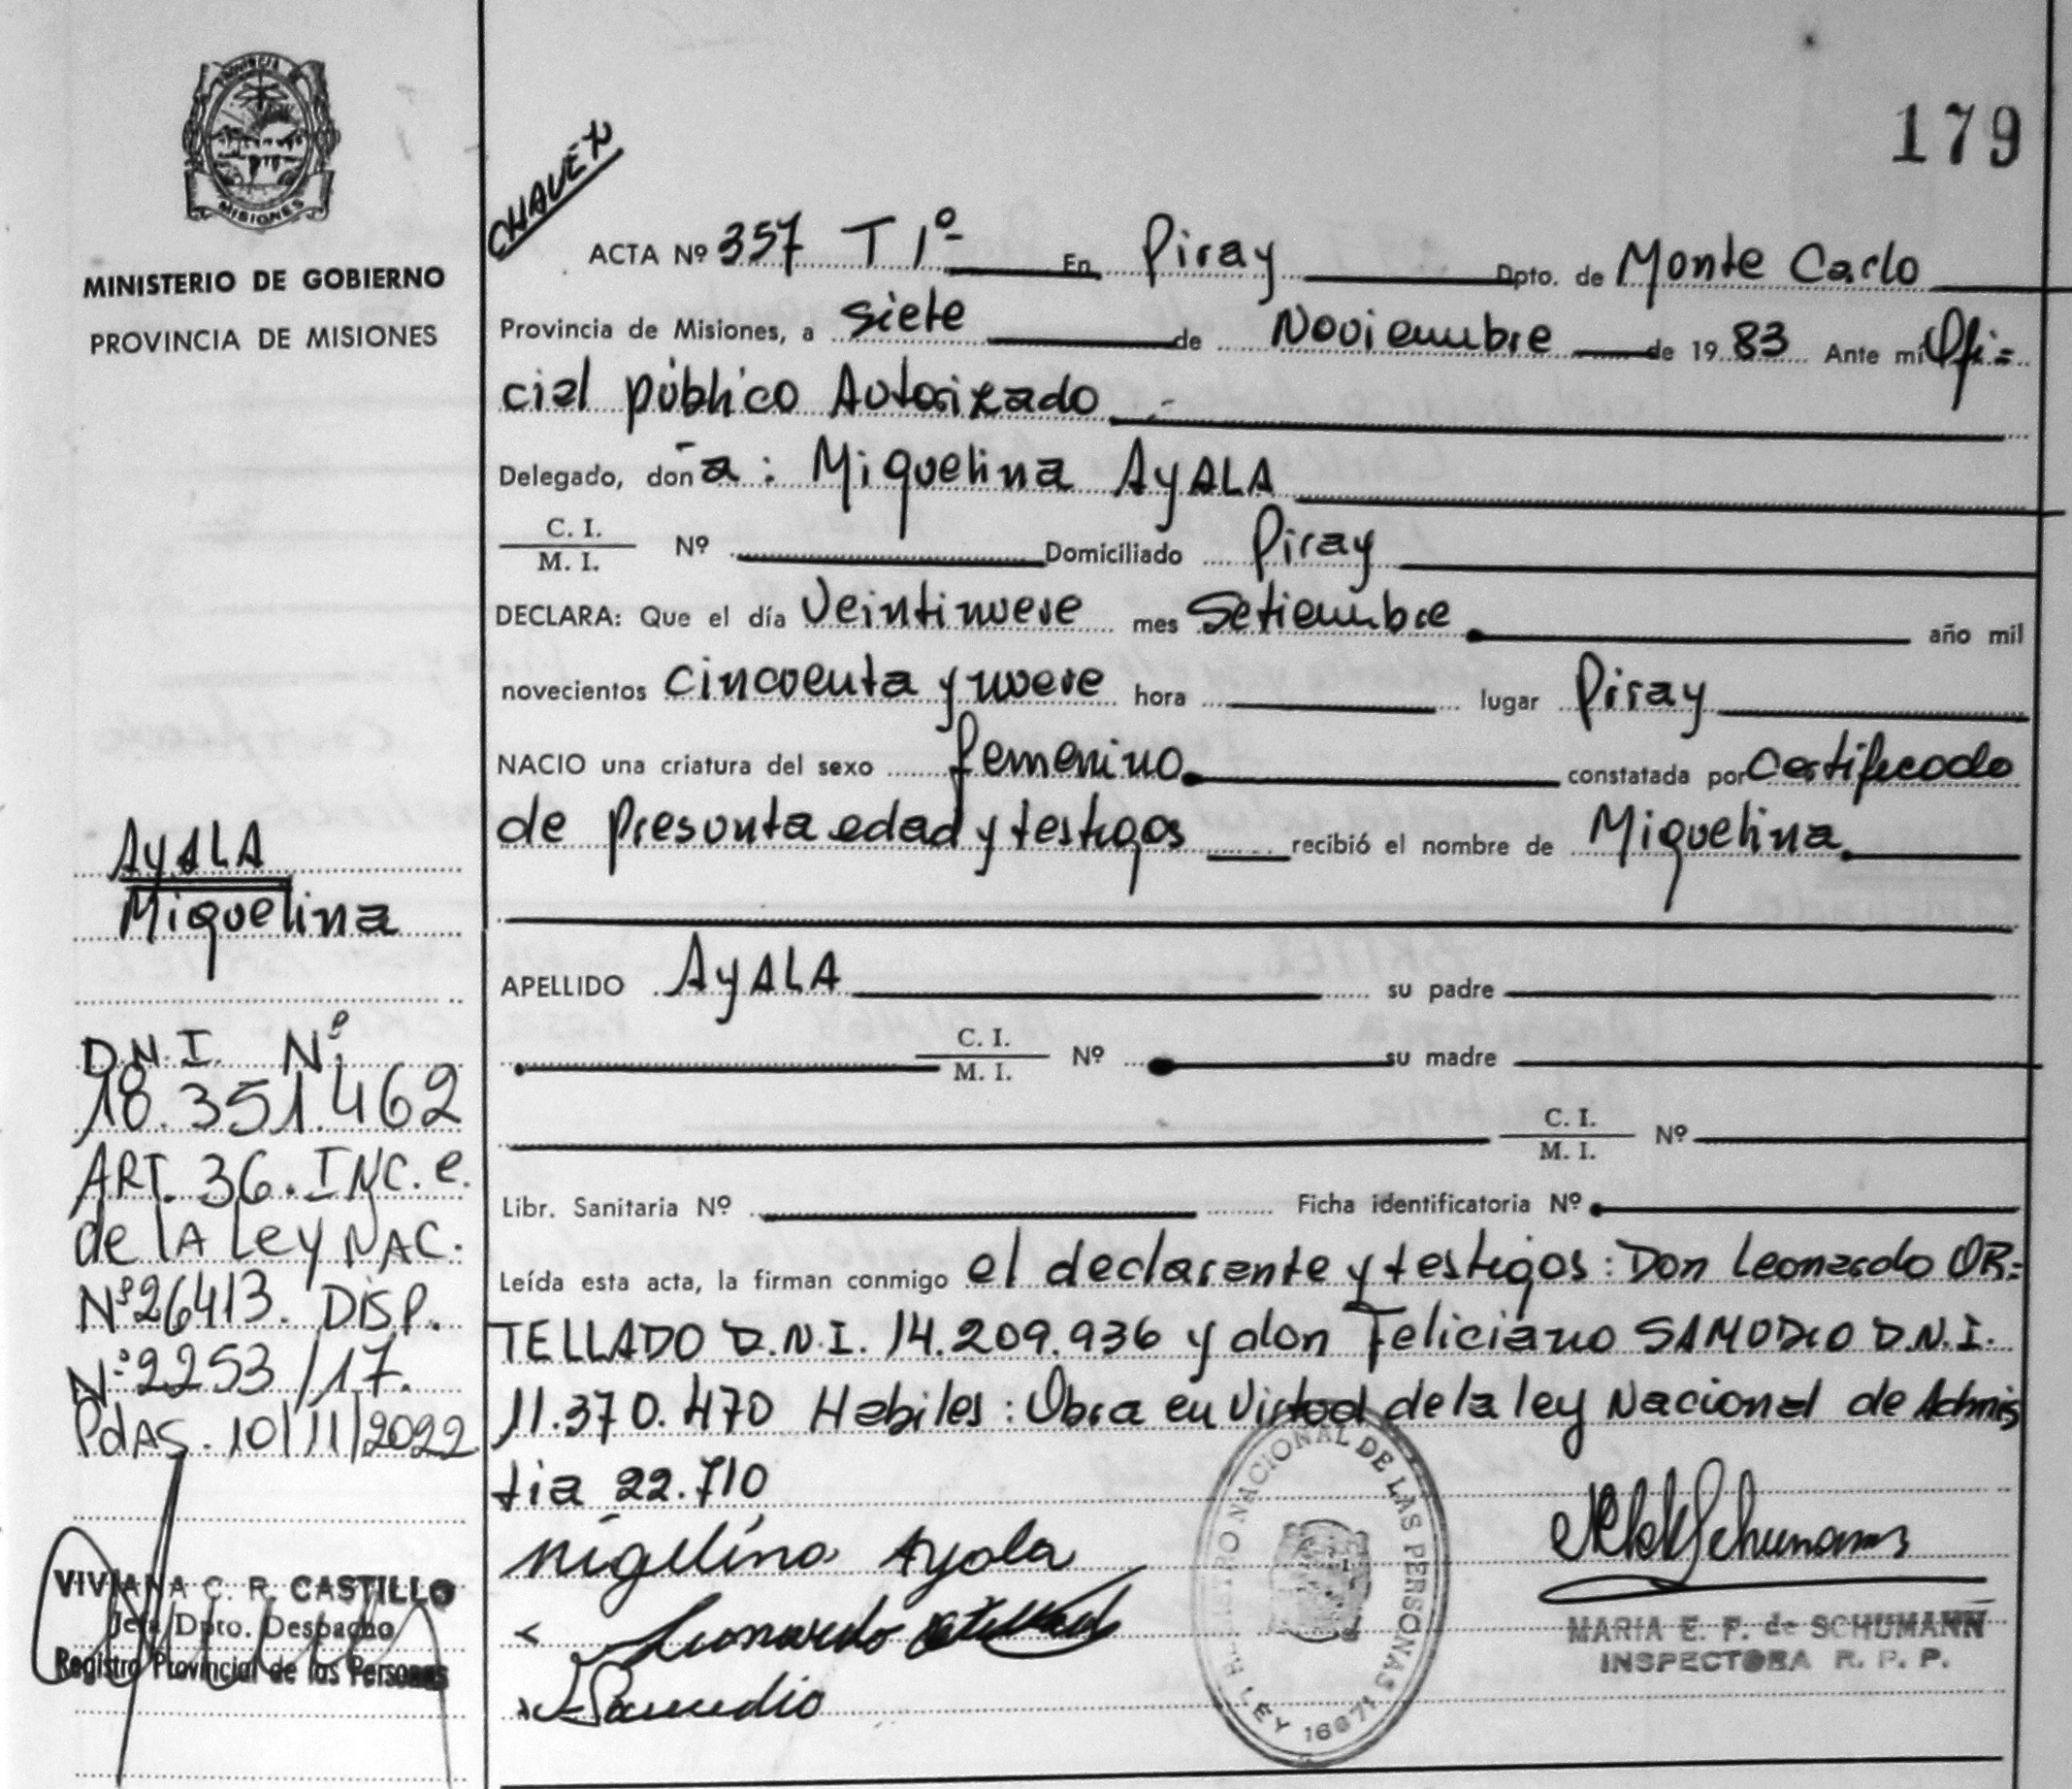 PROVINCIA DE
MISIONES
MINISTERIO DE GOBIERNO
PROVINCIA DE MISIONES
AyALA
Miquelina
D.N.I. Nº
18.351.462
ART. 36. INC. e.
de lA Ley NAC.
Nº26413. DISP.
Nº2253/17.
PdAS. 10/11/2022
VIVIANA C. R. CASTILLO
Jefa Dpto. Despacho
Registro Provincial de las Personas
179
ACTA Nº 357 T 1º En Piray Dpto. de Monte Carlo
Provincia de Misiones, a siete de Noviembre de 1983 Ante mi Ofi=
cial público Autorizado
Delegado, doña : Miquelina AyALA
C. I. / M. I. Nº Domiciliado Piray
DECLARA: Que el día Veintinueve mes Setiembre año mil
novecientos cincuenta y nueve hora lugar Piray
NACIO una criatura del sexo femenino constatada por Certificado
de presunta edad y testigos recibió el nombre de Miquelina
APELLIDO AyALA su padre
C. I. / M. I. Nº su madre
C. I. / M. I. Nº
Libr. Sanitaria Nº Ficha identificatoria Nº
Leída esta acta, la firman conmigo el declarante y testigos: Don Leonardo OR=
TELLADO D.N.I. 14.209.936 y don Feliciano SAMUDIO D.N.I.
11.370.470 Habiles: Obra en Virtud de la ley Nacional de Admis
tia 22.710
migelina Ayala
Leonardo
Samudio
REGISTRO NACIONAL DE LAS PERSONAS
LEY 16671
Schumann
MARIA E. F. de SCHUMANN
INSPECTORA R. P. P.